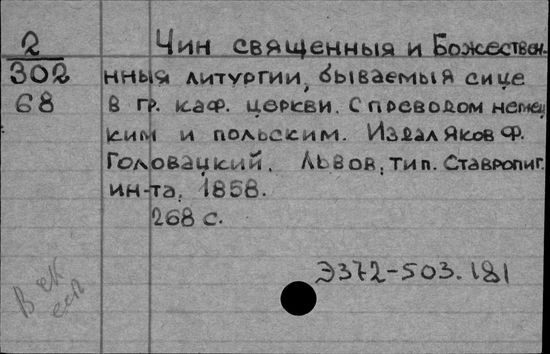 2
302
68
Чин священныя и Божествен-
нныя литургии, бываемыя сице
в гр. каф. церкви. С преводом немец
ким и польским. Издал Яков Ф.
Головацкий. Львов, тип. Ставропиг.
ин-та, 1858.
268 с.
Э372-503.181
В ек
есп